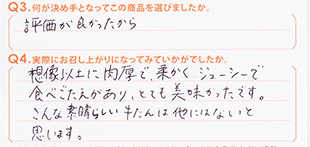 Q3.何が決め手となってこの商品を選びましたか。
評価が良かったから
Q4.実際にお召し上がりになってみていかがでしたか。
想像以上に肉厚で、柔かく ジューシーで
食べごたえがあり、とても美味かったです。
こんな素晴らしい牛たんは他にはないと
思います。